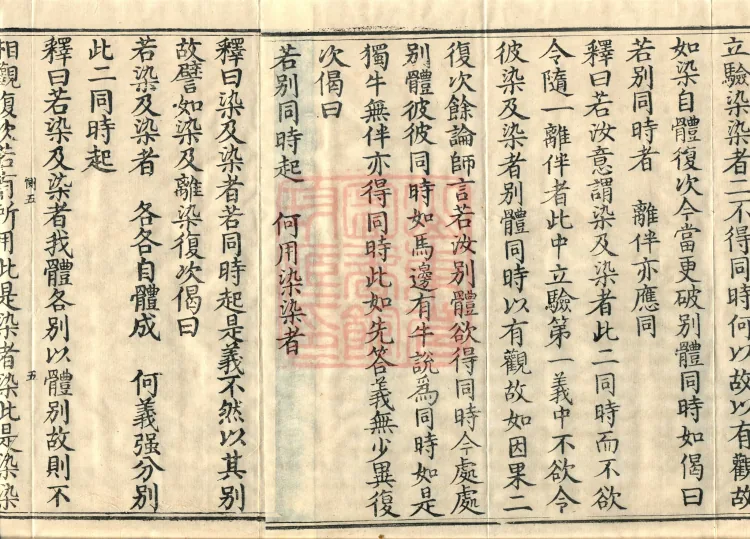 立驗染染者二不得同時何以故以有觀故
如染自體復次今當更破別體同時如偈曰
若別同時者　離伴亦應同
釋曰若汝意謂染及染者此二同時而不欲
令隨一離伴者此中立驗第一義中不欲令
彼染及染者別體同時以有觀故如因果二
復次餘論師言若汝別體欲得同時今處處
別體彼彼同時如馬邊有牛說爲同時如是
獨牛無伴亦得同時此如先答義無少異復
次偈曰
若別同時起　何用染染者
釋曰染及染者若同時起是義不然以其別
故譬如染及離染復次偈曰
若染及染者　各各自體成　何義强分別
此二同時起
釋曰若染及染者我體各別以體別故則不
惻五　五
相觀復次若有所用此是染者染此是染染